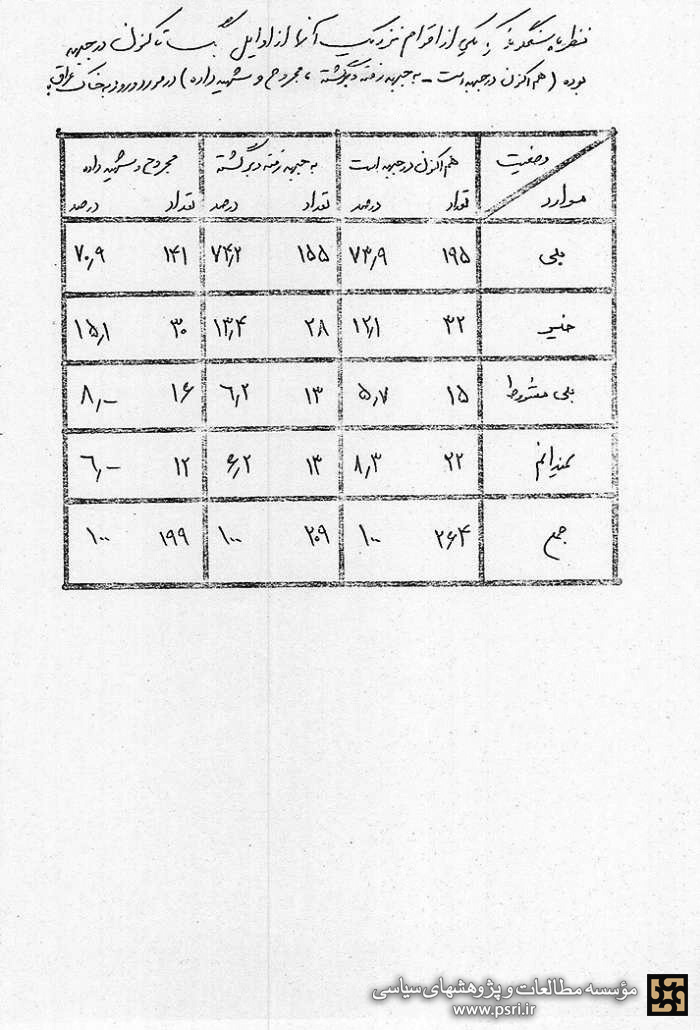 نظر پاسخگویانی که یکی از اقوام نزدیک آنها از اوایل جنگ تا کنون در جبهه
بوده (هم اکنون در جبهه است - به جبهه رفته و برگشته ، مجروح و شهید داده) در مورد ورود به خاک عراق
وضعیت هم اکنون در جبهه است به جبهه رفته و برگشته مجروح و شهید داده
موارد تعداد درصد تعداد درصد تعداد درصد
بلی ۱۹۵ ۷۳٫۹ ۱۵۵ ۷۴٫۲ ۱۴۱ ۷۰٫۹
خیر ۳۲ ۱۲٫۱ ۲۸ ۱۳٫۴ ۳۰ ۱۵٫۱
بلی مشروط ۱۵ ۵٫۷ ۱۳ ۶٫۲ ۱۶ ۸٫-
نمیدانم ۲۲ ۸٫۳ ۱۳ ۶٫۲ ۱۲ ۶٫-
جمع ۲۶۴ ۱۰۰ ۲۰۹ ۱۰۰ ۱۹۹ ۱۰۰
مؤسسه مطالعات و پژوهشهای سیاسی
www.psri.ir